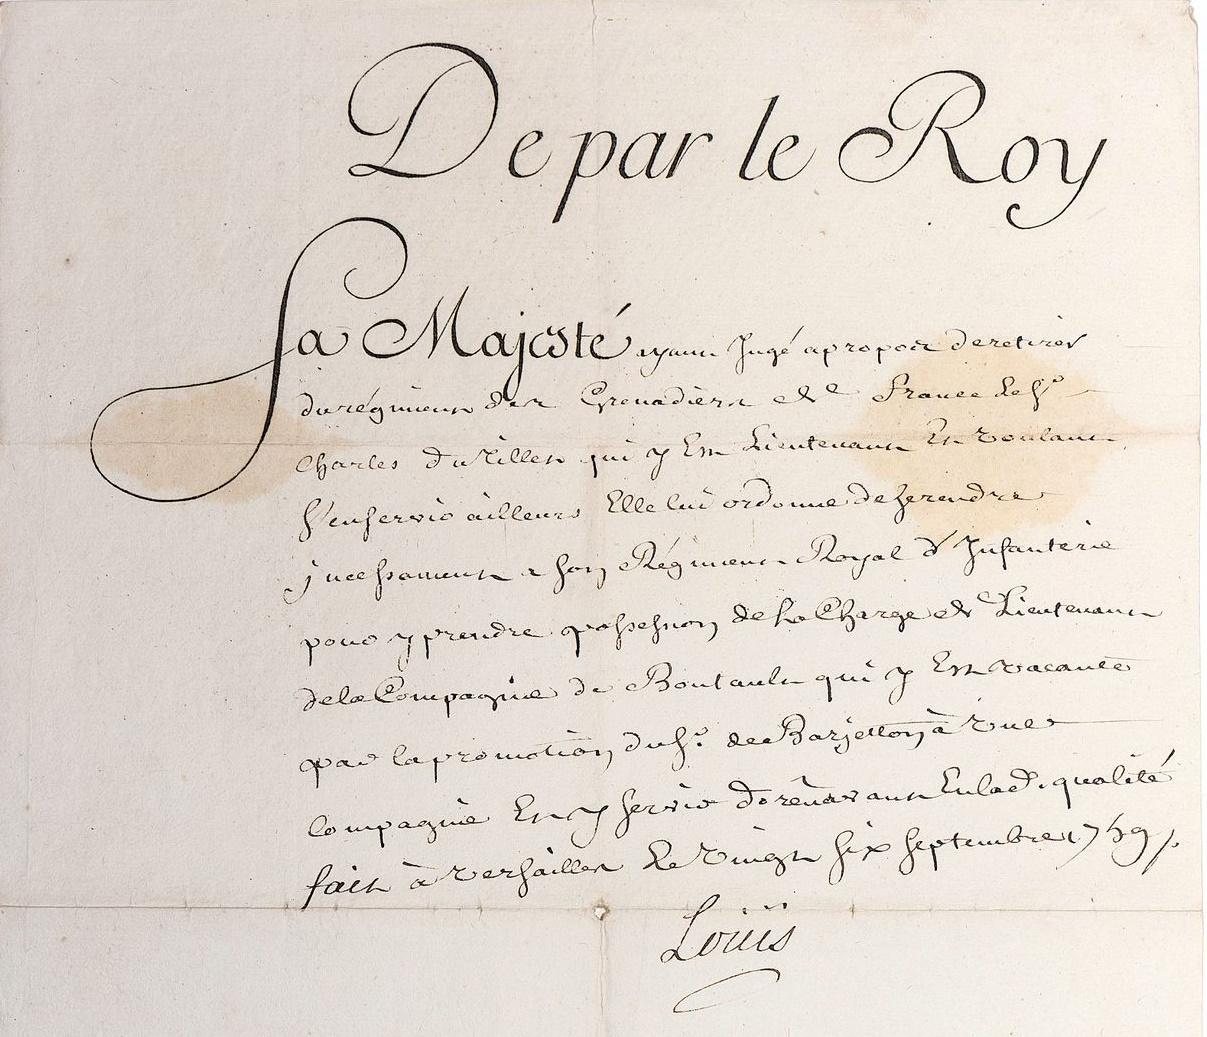 De par le Roy
Sa Majesté ayant Jugé apropos de retirer
du régiment des Grenadiers de France le Sr.
Charles du Tillet qui y Est Lieutenant Et voulant
S'en servir ailleurs Elle lui ordonne de se rendre
jncessament a son Régiment Royal d'Infanterie
pour y prendre possession de la Charge de Lieutenant
de la Compagnie de Boutault qui y Est vacante
par la promotion du Sr. de Barjetton à une
Compagnie Et y servir dorénavant En lad. qualité
fait à Versailles le Vingt six septembre 1759 /.
Louis